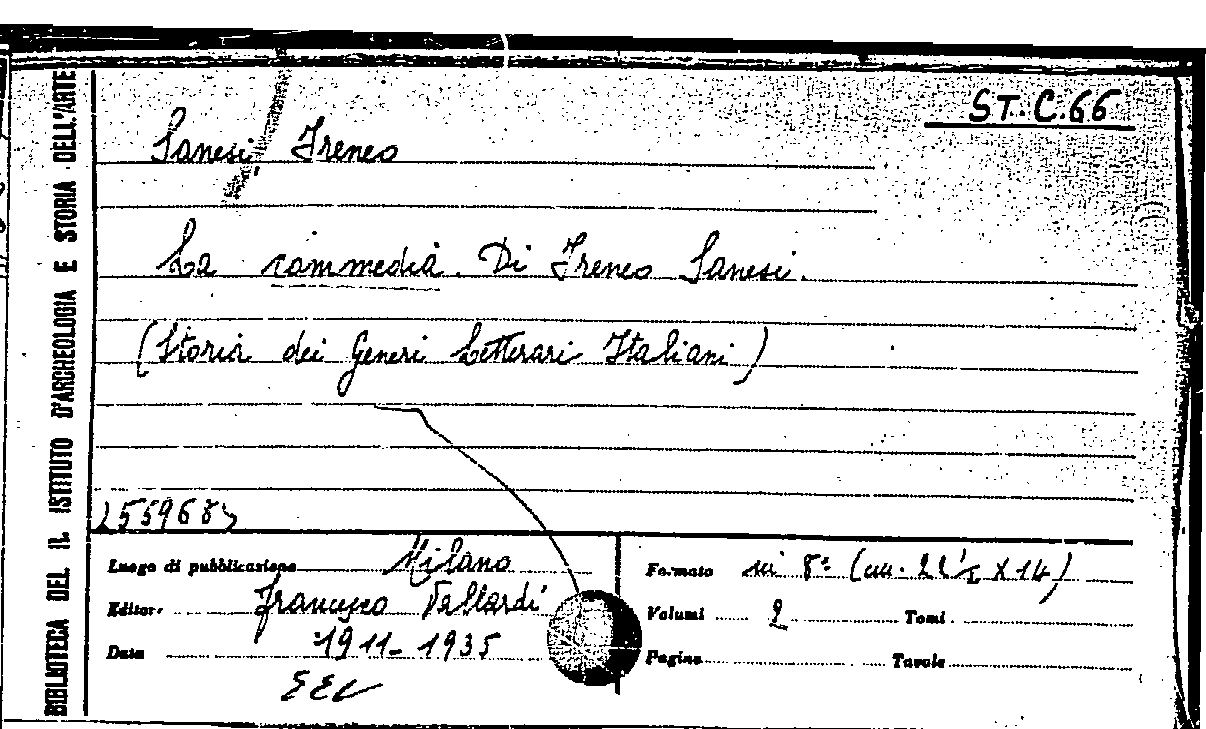 ST. C. 66
Sanesi, Ireneo
La commedia. Di Ireneo Sanesi.
(Storia dei Generi Letterari Italiani)
Luogo di pubblicazione Milano
Editore Francesco Vallardi
Data 1911-1935
Formato in 8°
Volumi 2 Tomi
Pagine Tavole
BIBLIOTECA DEL R. ISTITUTO D'ARCHEOLOGIA E STORIA DELL'ARTE